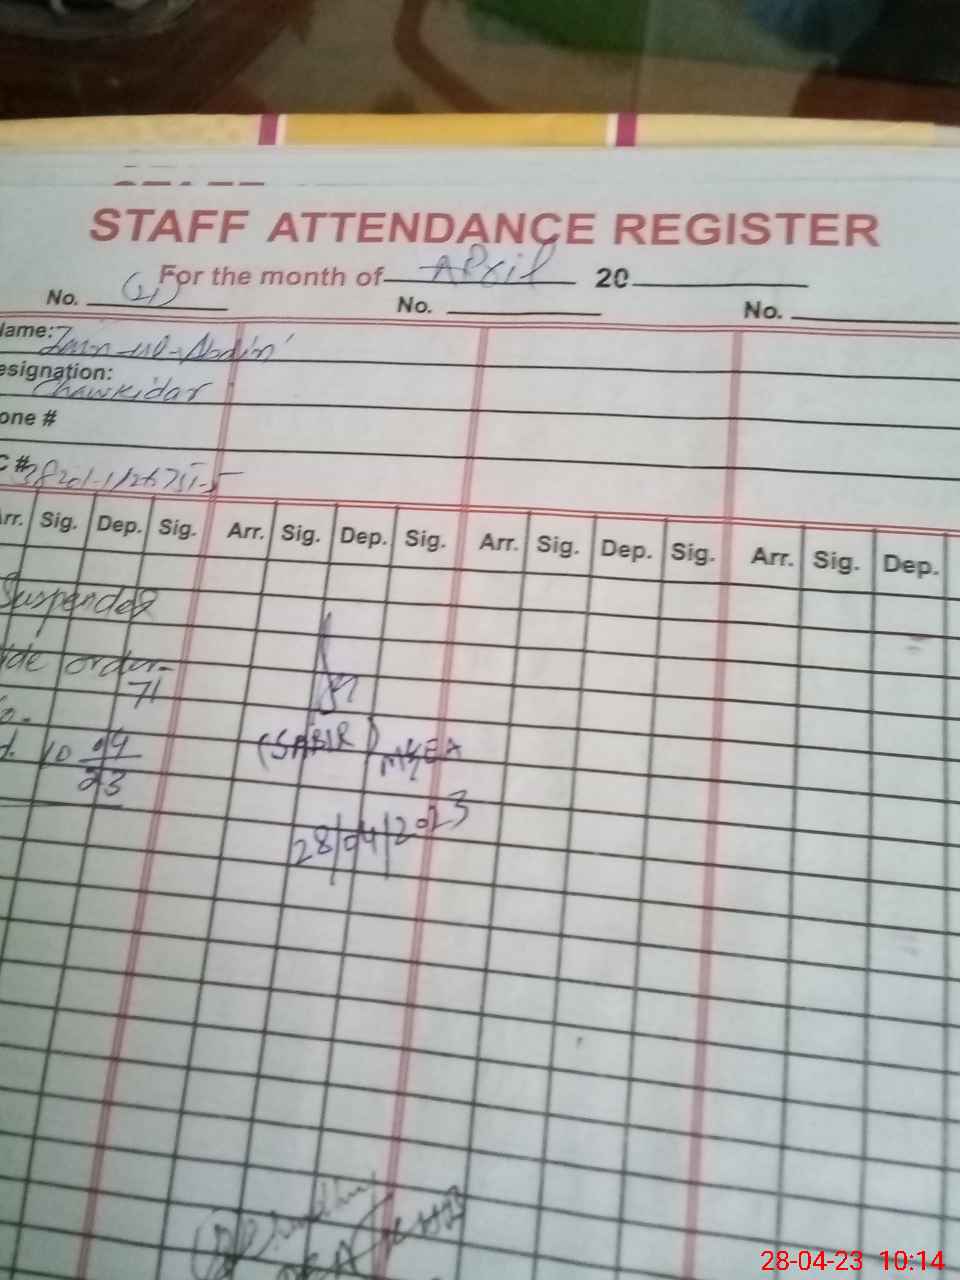 STAFF
STAFF ATTENDANCE REGISTER
For the month of April 20
No. (21) No. No.
Name: Zain-ul-Abdin
esignation: Chawkidar
one #
C #
Arr. Sig. Dep. Sig. Arr. Sig. Dep. Sig. Arr. Sig. Dep. Sig. Arr. Sig. Dep.
Suspended
ide order
71
10 04
23
(SABIR) MEA
28/04/2023
28-04-23 10:14